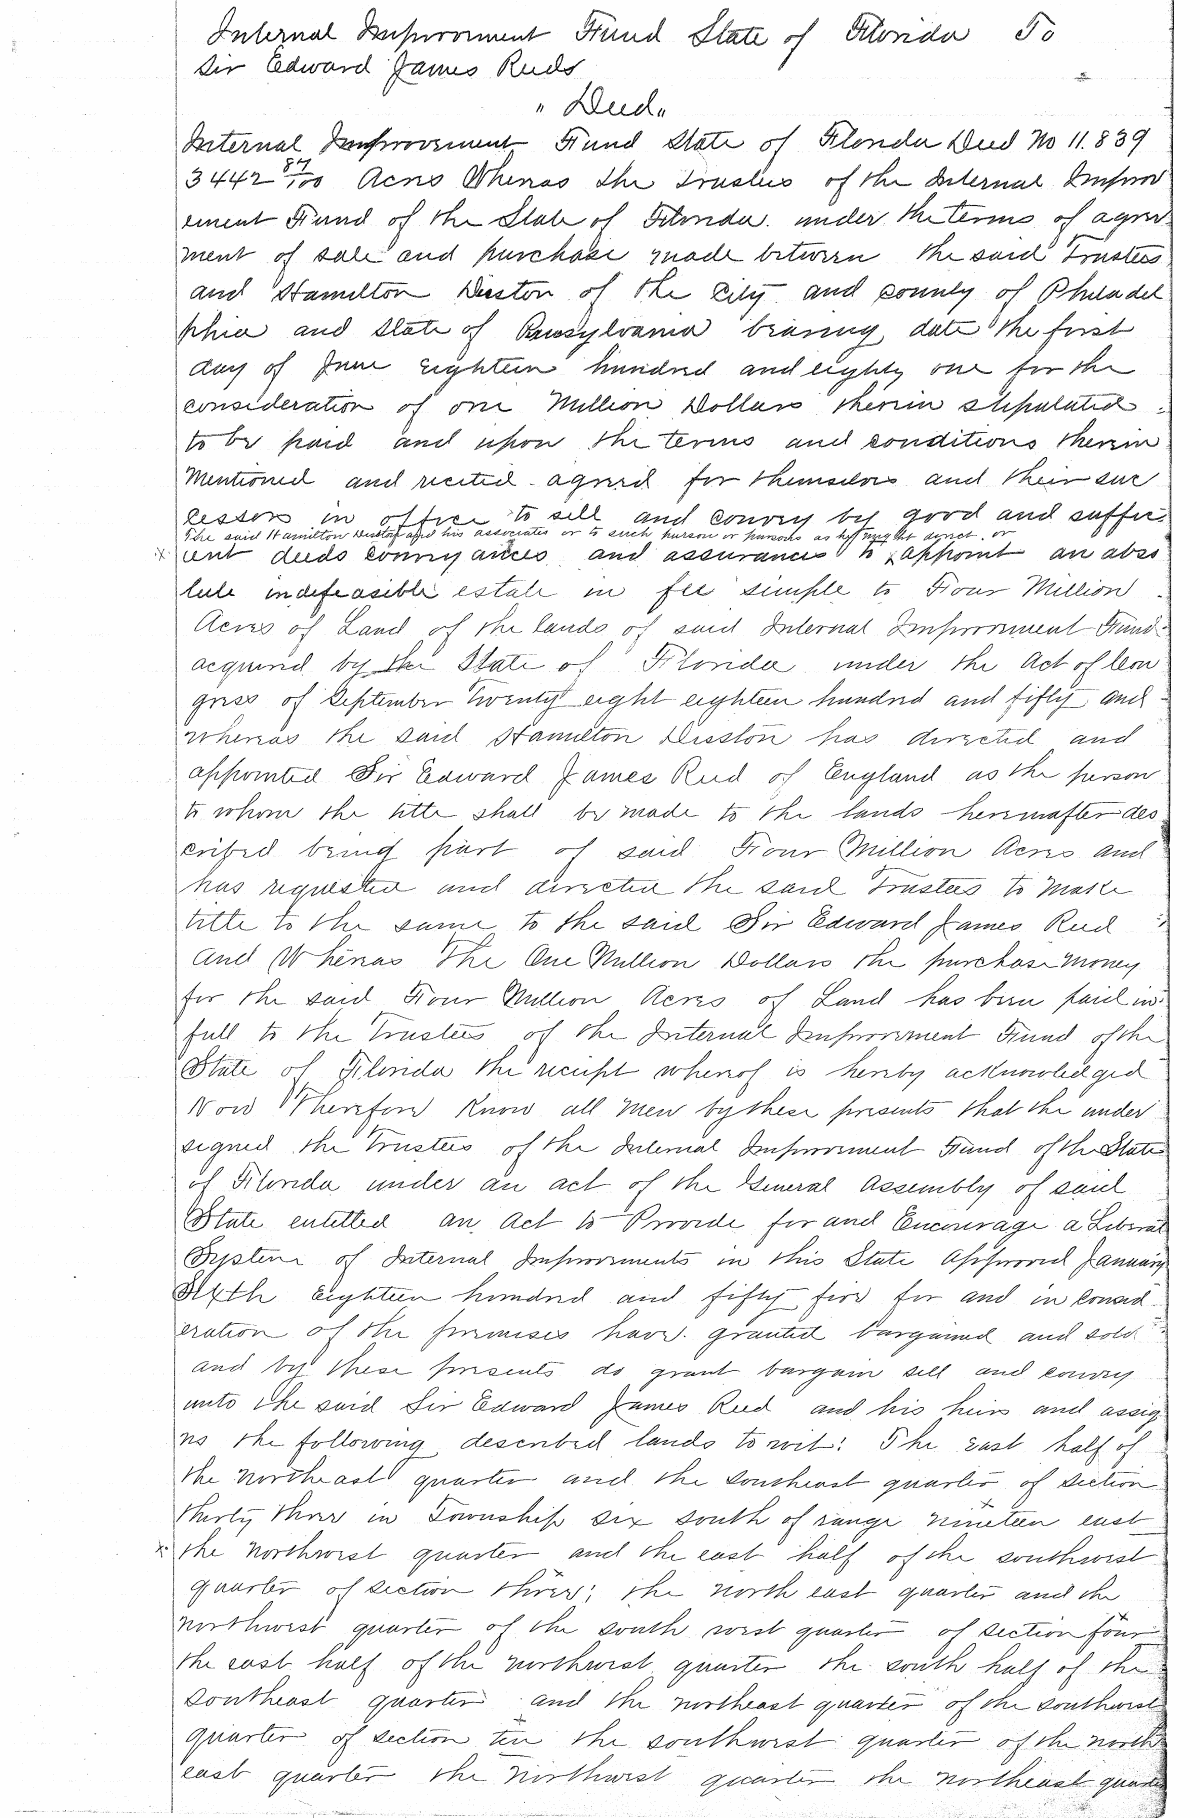 Internal Improvement Fund State of Florida To
Sir Edward James Reeds
" Deed "
Internal Improvement Fund State of Florida Deed No 11.839
3442 87/100 Acres Whereas the Trustees of the Internal Improv
ement Fund of the State of Florida. under the terms of agree
ment of sale and purchase made between the said Trustees
and Hamilton Disston of the City and county of Philadel
phia and State of Pensylvania bearing date the first
day of June eighteen hundred and eighty one for the
consideration of one Million Dollars therein stipulated
to be paid and upon the terms and conditions therein
Mentioned and recited agreed for themselves and their suc
cessors in office to sell and convey by good and suffici
The said Hamilton Disston and his associates or to such person or persons as he might direct or
x ient deeds conveyances and assurances to ^ appoint an abso
lute indefeasible estate in fee simple to Four Million
Acres of Land of the lands of said Internal Improvement Fund
acquired by the State of Florida under the Act of Con
gress of September Twenty eight eighteen hundred and fifty and
whereas the said Hamilton Disston has directed and
appointed Sir Edward James Reed of England as the person
to whom the title shall be made to the lands hereinafter des
cribed being part of said Four Million Acres and
has requested and directed the said Trustees to Make
title to the same to the said Sir Edward James Reed
And Whereas The One Million Dollars the purchase money
for the said Four Million Acres of Land has been paid in
full to the Trustees of the Internal Improvement Fund of the
State of Florida the receipt whereof is hereby acknowledged
Now Therefore Know all Men by these presents that the under
signed the Trustees of the Internal Improvement Fund of the State
of Florida under an act of the General Assembly of said
State entitled an Act to Provide for and Encourage a Liberal
System of Internal Improvements in this State Approved January
Sixth Eighteen hundred and fifty five for and in consid
eration of the premises have granted bargained and sold
and by these presents do grant bargain sell and convey
unto the said Sir Edward James Reed and his heirs and assig
ns the following described lands to wit: The east half of
the northeast quarter and the southeast quarter of section
thirty three in Township six south of range nineteen east
x the northwest quarter and the east half of the southwest
quarter of section three; the north east quarter and the
northwest quarter of the south west quarter of section four
the east half of the northwest quarter the south half of the
southeast quarter and the northeast quarter of the southwest
quarter of section ten the southwest quarter of the north
east quarter the northwest quarter the northeast quarter